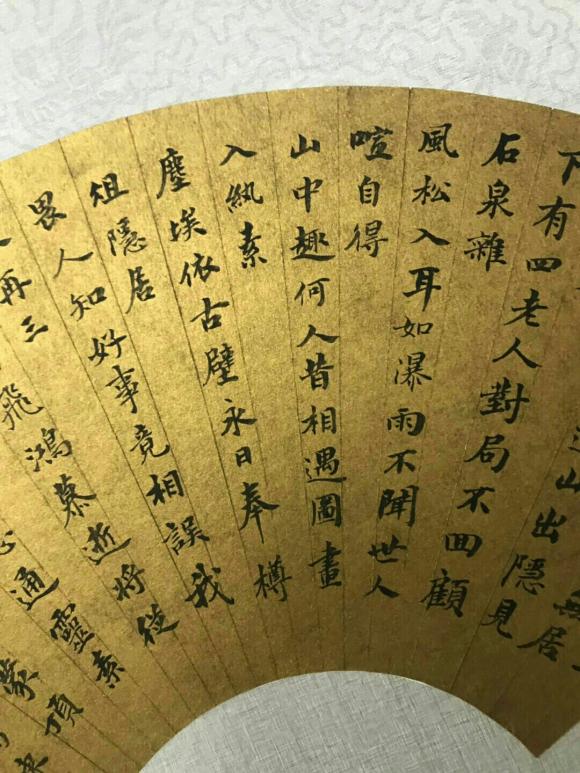 無居
山出隱見
下有四老人對局不回顧
石泉雜
風松入耳如瀑雨不聞世人
喧自得
山中趣何人昔相遇圖畫
入紈素
塵埃依古壁永日奉樽
俎隱居
畏人知好事竟相誤我
再三
飛鴻慕逝將從
心通靈素
蒙頂